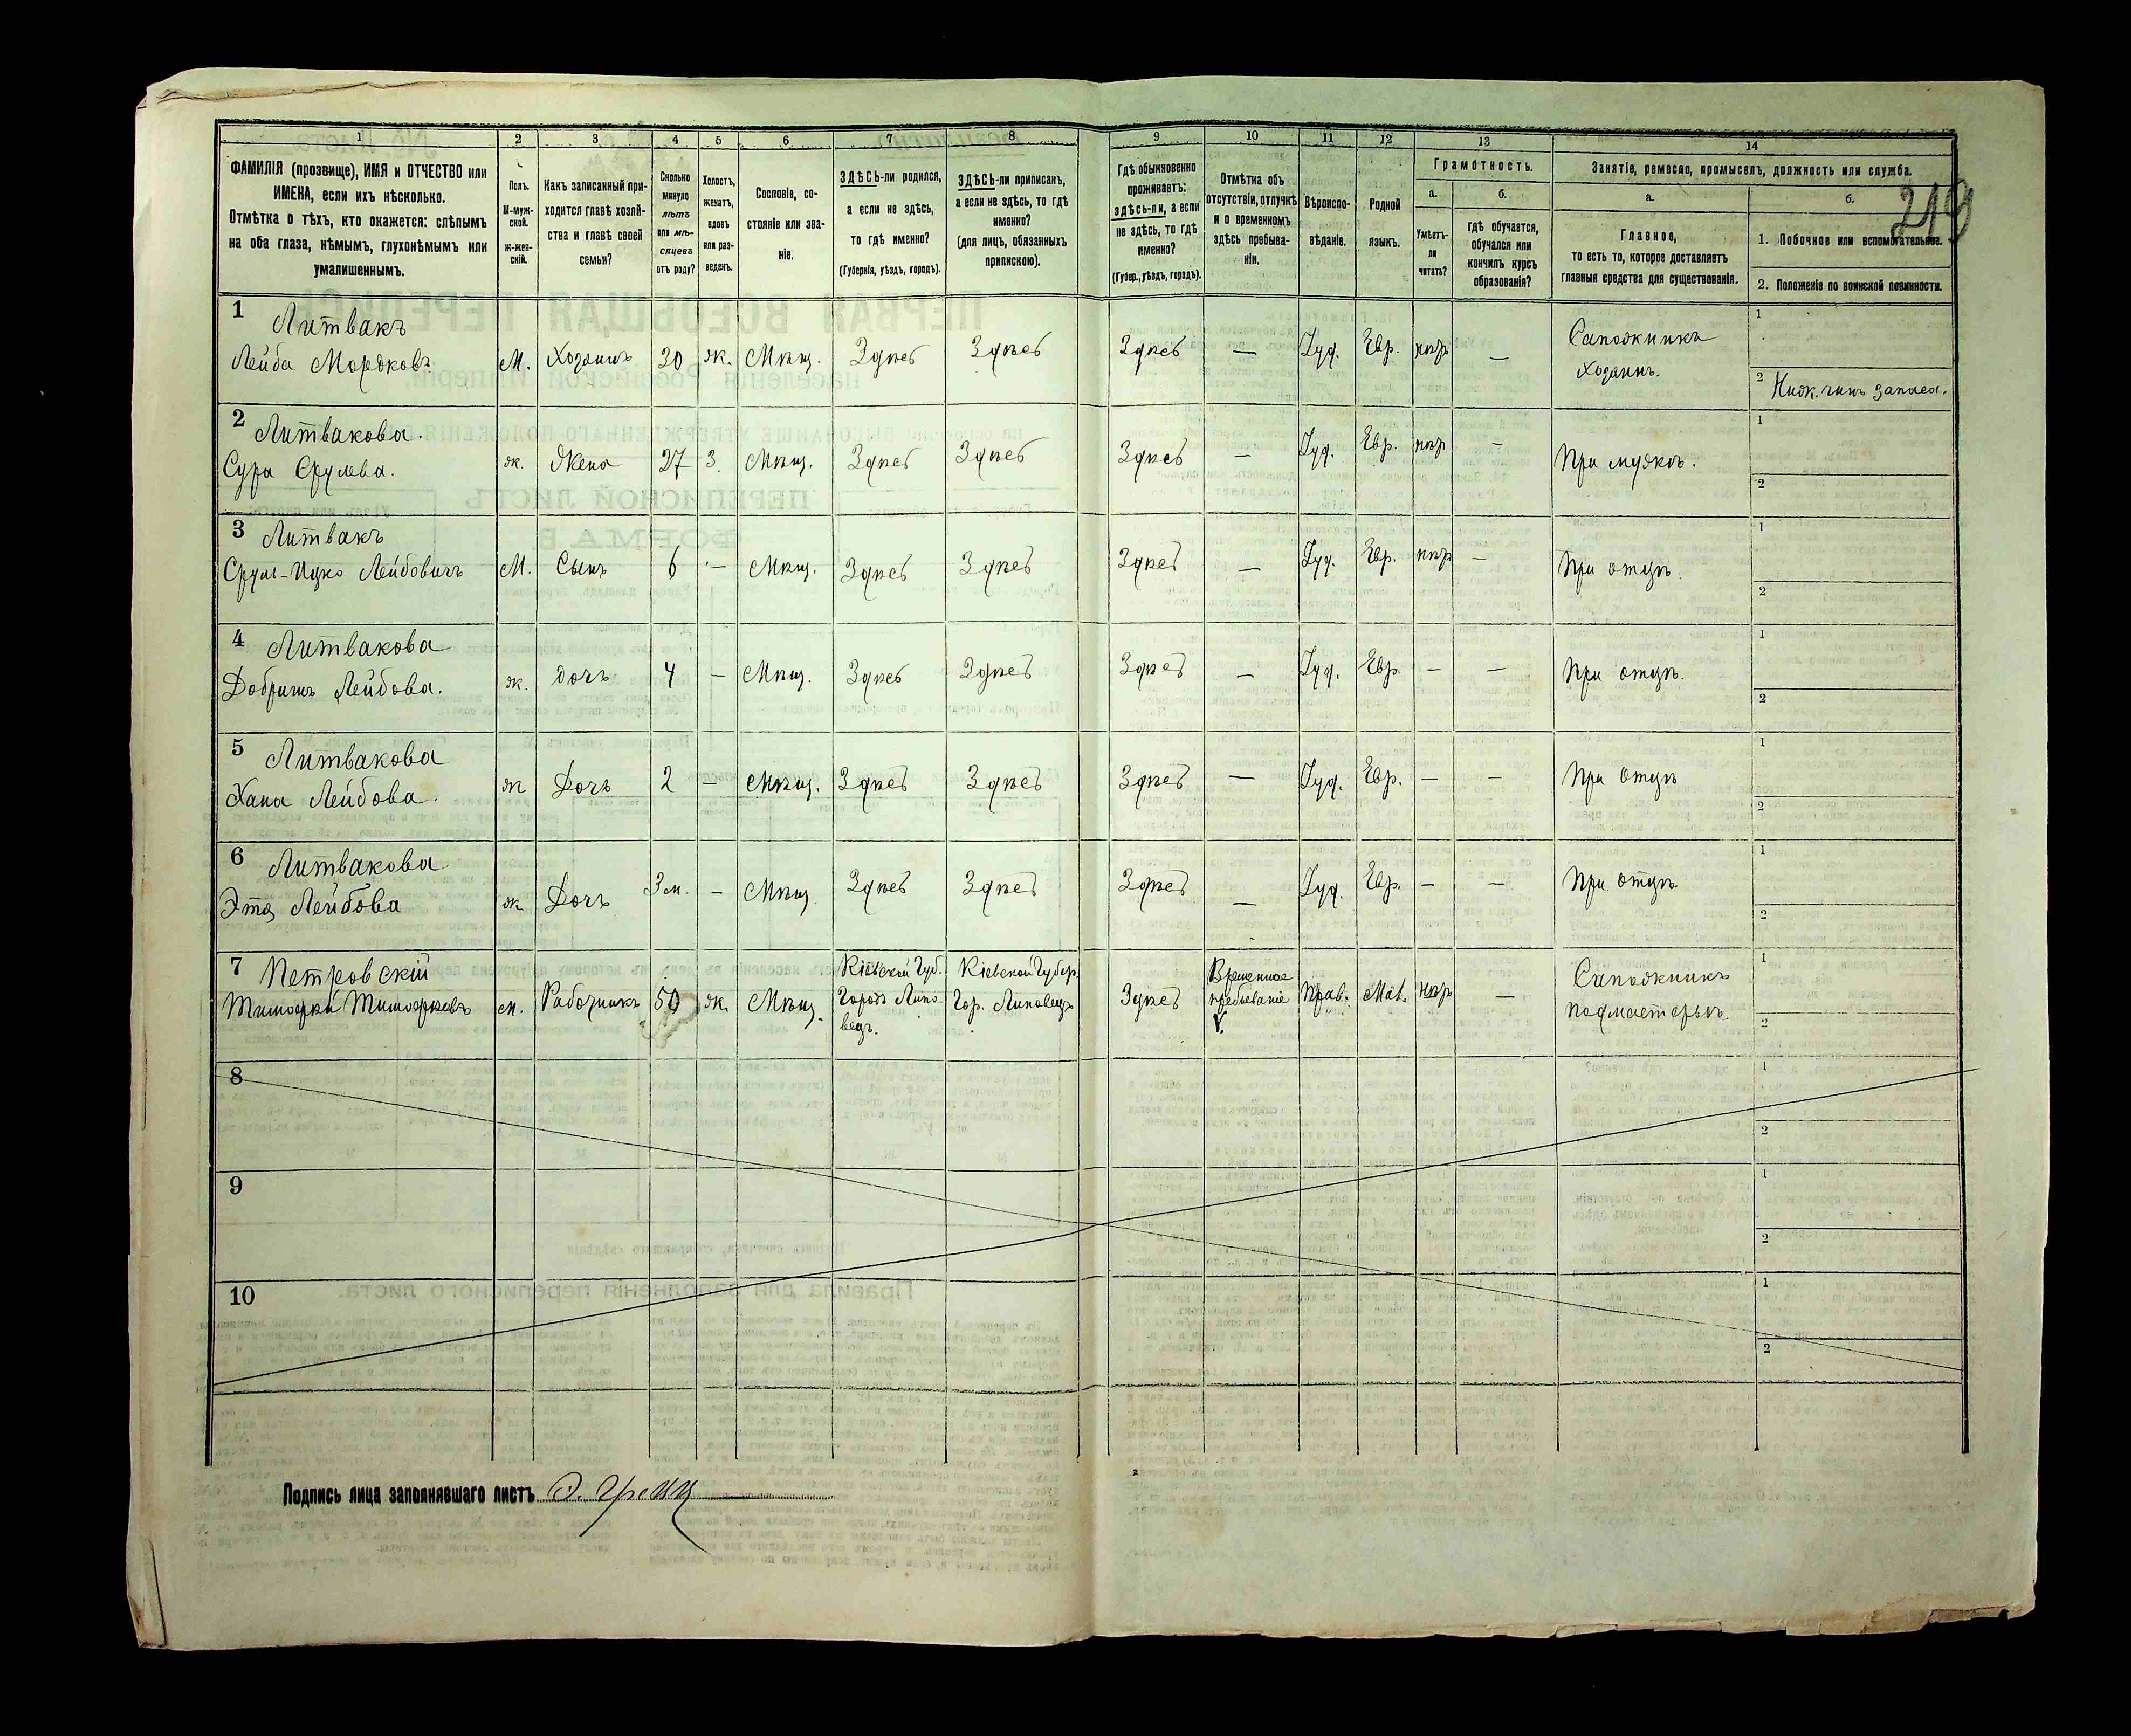 1 2 3 4 5 6 7 8 9 10 11 12 13 14
ФАМИЛІЯ (прозвище), ИМЯ и ОТЧЕСТВО или
ИМЕНА, если ихъ нѣсколько.
Отмѣтка о тѣхъ, кто окажется: слѣпымъ
на оба глаза, нѣмымъ, глухонѣмымъ или
умалишеннымъ.
Полъ.
М-муж-
ской.
Ж-жен-
скій.
Какъ записанный при-
ходится главѣ хозяй-
ства и главѣ своей
семьи?
Сколько
минуло
лѣтъ
или мѣ-
сяцевъ
отъ роду?
Холостъ,
женатъ,
вдовъ
или раз-
веденъ.
Сословіе, со-
стояніе или зва-
ніе.
ЗДѢСЬ-ли родился,
а если не здѣсь,
то гдѣ именно?
(Губернія, уѣздъ, городъ).
ЗДѢСЬ-ли приписанъ,
а если не здѣсь, то гдѣ
именно?
(для лицъ, обязанныхъ
припискою).
Гдѣ обыкновенно
проживаетъ:
здѣсь-ли, а если
не здѣсь, то гдѣ
именно?
(Губер., уѣздъ, городъ).
Отмѣтка объ
отсутствіи, отлучкѣ
и о временномъ
здѣсь пребыва-
ніи.
Вѣроиспо-
вѣданіе.
Родной
языкъ.
Грамотность.
а.
Умѣетъ-
ли
читать?
б.
гдѣ обучается,
обучался или
кончилъ курсъ
образованія?
Занятіе, ремесло, промыселъ, должность или служба.
а.
Главное,
то есть то, которое доставляетъ
главныя средства для существованія.
б.
219
1. Побочное или вспомогательное.
2. Положеніе по воинской повинности.
1 Литвакъ
Лейба Мордковъ М. Хозяинъ 30 ж. Мѣщ. Здѣсь Здѣсь Здѣсь — Іуд. Евр. нѣтъ — Сапожникъ
Хозяинъ.
1
2 Ниж. чинъ запаса.
2 Литвакова.
Сура Срулева. ж. Жена 27 З. Мѣщ. Здѣсь Здѣсь Здѣсь — Іуд. Евр. нѣтъ — При мужѣ.
1
2
3 Литвакъ
Сруль-Ицко Лейбовичъ М. Сынъ 6 — Мѣщ. Здѣсь Здѣсь Здѣсь — Іуд. Евр. нѣтъ — При отцѣ.
1
2
4 Литвакова
Добришъ Лейбова. ж. дочь 4 — Мѣщ. Здѣсь Здѣсь Здѣсь — Іуд. Евр. — — При отцѣ.
1
2
5 Литвакова
Хана Лейбова. ж Дочь 2 — Мѣщ. Здѣсь Здѣсь Здѣсь — Іуд. Евр. — — При Отцѣ
1
2
6 Литвакова
Эта Лейбова ж Дочь 3 м. — Мѣщ. Здѣсь Здѣсь Здѣсь — Іуд. Евр. — — При отцѣ.
1
2
7 Петровскій
Тимофей Тимофеевъ м. Работникъ 50 ж. Мѣщ.
Кіевской Губ.
Городъ Липо-
вецъ.
Кіевской Губер.
Гор. Липовецъ
Здѣсь
Временное
пребываніе
V.
Прав. Мал. нѣтъ —
Сапожникъ
подмастерье
1
2
8
1
2
9
1
2
10
1
2
Подпись лица заполнявшаго листъ